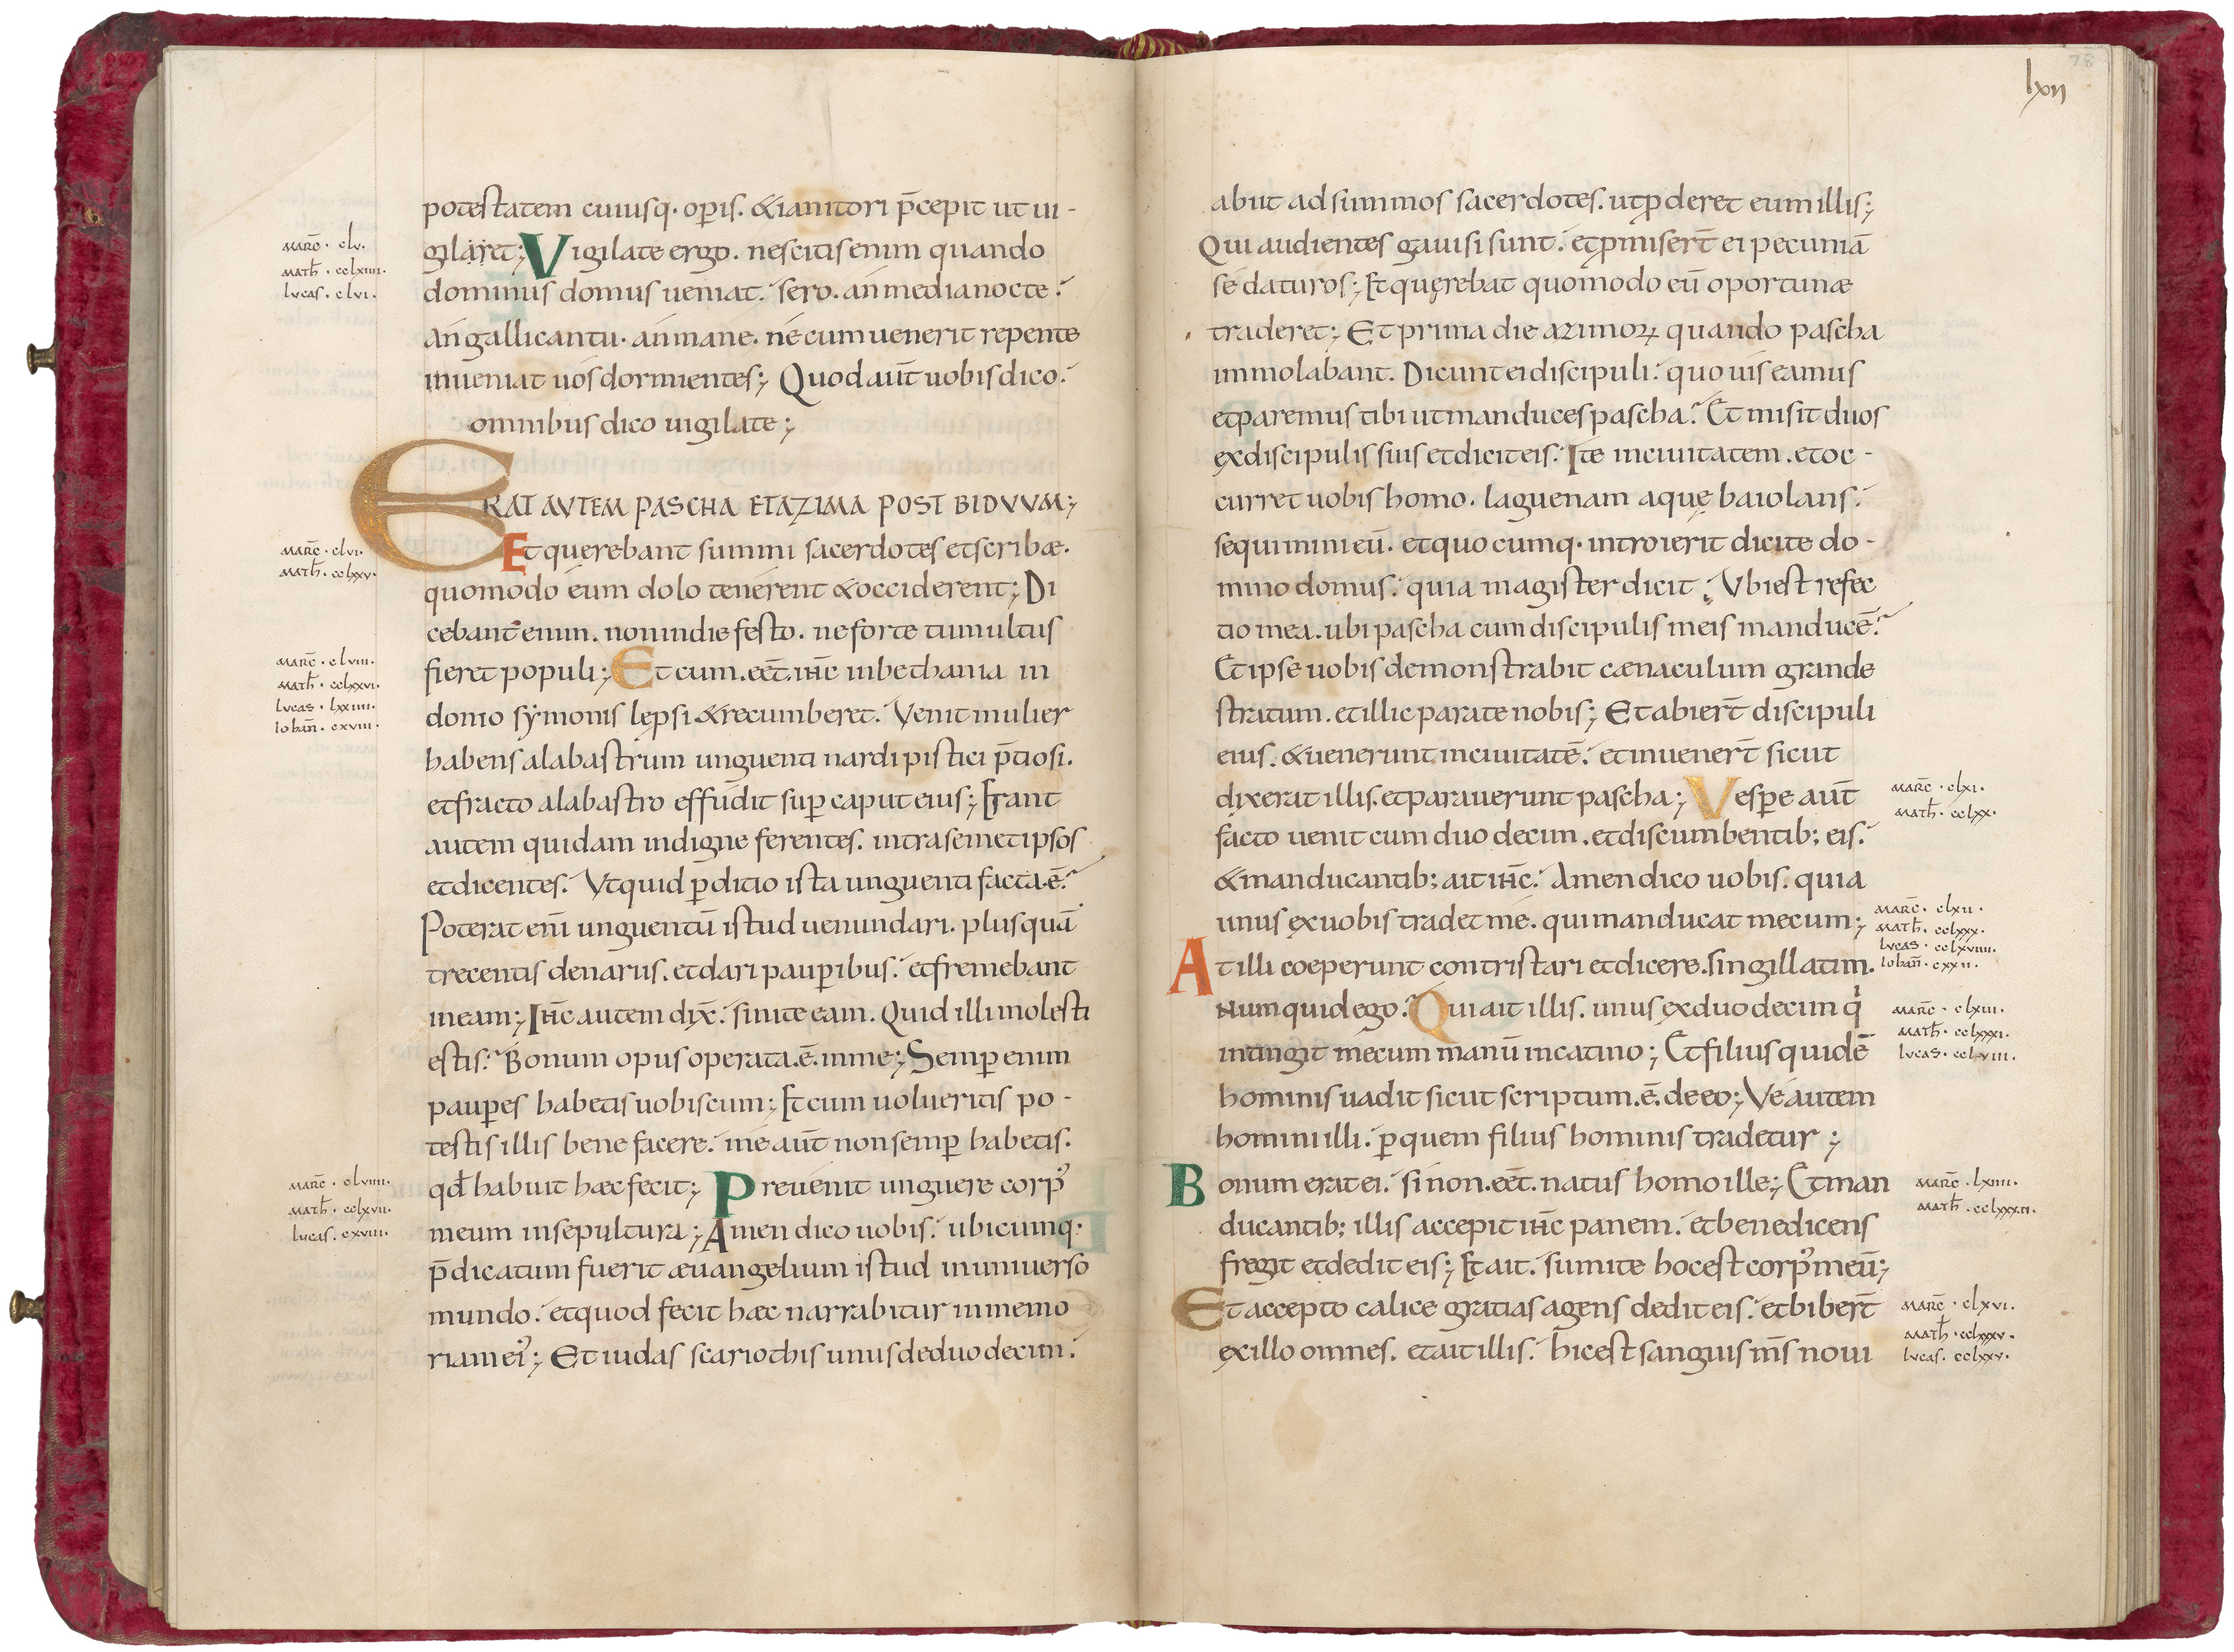 potestatem cuiusq· op̄is. & ianitori p̄cepit ut ui-
marc̄ · clv.
math̄ · cclxiiii.
lvcas. clvi.
gilaret; Vigilate ergo. nescitis enim quando
dominus domus ueniat. sero. an media nocte.
an gallicantu. an mane. ne cum uenerit repente
inueniat uos dormientes; Quod aut̄ uobis dico.
omnibus dico uigilate;
ERAT AVTEM PASCHA ET AZIMA POST BIDVVM;
marc̄ · clvi.
math̄ · cclxxv.
Et querebant summi sacerdotes et scribæ.
quomodo eum dolo tenerent & occiderent; Di
cebant enim. non in die festo. ne forte tumultus
marc̄ · clviii.
math̄ · cclxxvi.
lvcas · lxxiiii.
Iohan̄ · cxviii.
fieret populi; Et cum .eēt. ihc̄ in bethania in
domo sẏmonis lepsi & recumberet. Venit mulier
habens alabastrum unguenti nardi pistici p̄tiosi.
et fracto alabastro effudit sup̄ caput eius; Erant
autem quidam indigne ferentes. intra semet ipsos
et dicentes. Vt quid p̄ditio ista unguenti facta .ē.
Poterat eni̅ unguentū istud uenundari. plus quā
trecentis denariis. et dari paup̄ibus. et fremebant
in eam; Ihc̄ autem dix̄. sinite eam. Quid illi molesti
estis. Bonum opus operata .ē. in me; Semp̄ enim
paup̄es habetis uobiscum; Et cum uolueritis po-
testis illis bene facere. me aut̄ non semp̄ habetis.
marc̄ · clviiii.
math̄ · cclxvii.
lucas. cxviii.
qd̄ habuit hæc fecit; Preuenit unguere corp᾽
meum in sepultura; Amen dico uobis. ubicumq·
p̄dicatum fuerit æuangelium istud in uniuerso
mundo. et quod fecit hæc narrabitur in memo
riam ei᾽; Et iudas scariothis unus de duodecim.
lxii
78
abiit ad summos sacerdotes. ut p̱deret eum illis;
Qui audientes gauisi sunt. et p̱misert̄ ei pecuniā
se daturos; Et quęrebat quomodo eū oportunæ
traderet; Et prima die azimoꝝ quando pascha
immolabant. Dicunt ei discipuli. quo uis eamus
et paremus tibi ut manduces pascha? Et misit duos
ex discipulis suis et dicit eis. Ite in ciuitatem. et oc-
curret uobis homo. laguenam aquę baiolans.
sequimini eū. et quo cumq· introierit dicite do-
mino domus. quia magister dicit; Vbi est refec
tio mea. ubi pascha cum discipulis meis manducē?
Et ipse uobis demonstrabit cænaculum grande
stratum. et illic parate nobis; Et abiert̄ discipuli
eius. & uenerunt in ciuitatē. et inuenert̄ sicut
dixerat illis. et parauerunt pascha; Vesp̄e aut̄
marc̄ · clxi.
math̄ · cclxx.
facto uenit cum duodecim. et discumbentib; eis.
& manducantib; ait ihc̄. Amen dico uobis. quia
unus ex uobis tradet me. qui manducat mecum;
marc̄. clxii.
math̄. cclxxx.
lvcas. cclxviiii.
Iohan̄. cxxii.
At illi coeperunt contristari et dicere. singillatim.
Numquid ego? Qui ait illis. unus ex duodecim qi
marc̄ · clxiii.
math̄ · cclxxxi.
lvcas · cclxviii.
intingit mecum manū in catino; Et filius quidē
hominis uadit sicut scriptum .ē. de eo; Ve autem
homini illi. p̱ quem filius hominis tradetur;
Bonum erat ei. si non .eēt. natus homo ille; Et man
marc̄ · lxiiii.
math̄ · cclxxxii.
ducantib; illis accepit ihc̄ panem. et benedicens
fregit et dedit eis; Et ait. sumite hoc est corp᾽ meū;
Et accepto calice gratias agens dedit eis. et bibert̄
marc̄ · clxvi.
math̄ · cclxxxv.
lvcas. cclxxv.
ex illo omnes. et ait illis. hic est sanguis ms̄ noui